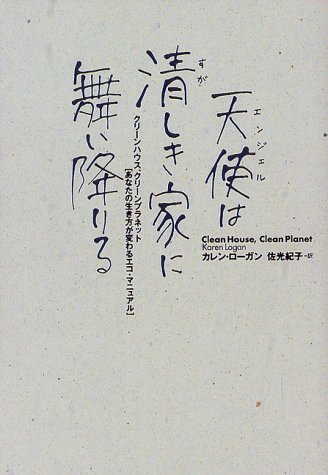 天使は
エンジェル
清しき家に
すが
舞い降りる
クリーンハウス、クリーンプラネット
[あなたの生き方が変わるエコ・マニュアル]
Clean House, Clean Planet
Karen Logan
カレン・ローガン 佐光紀子-訳